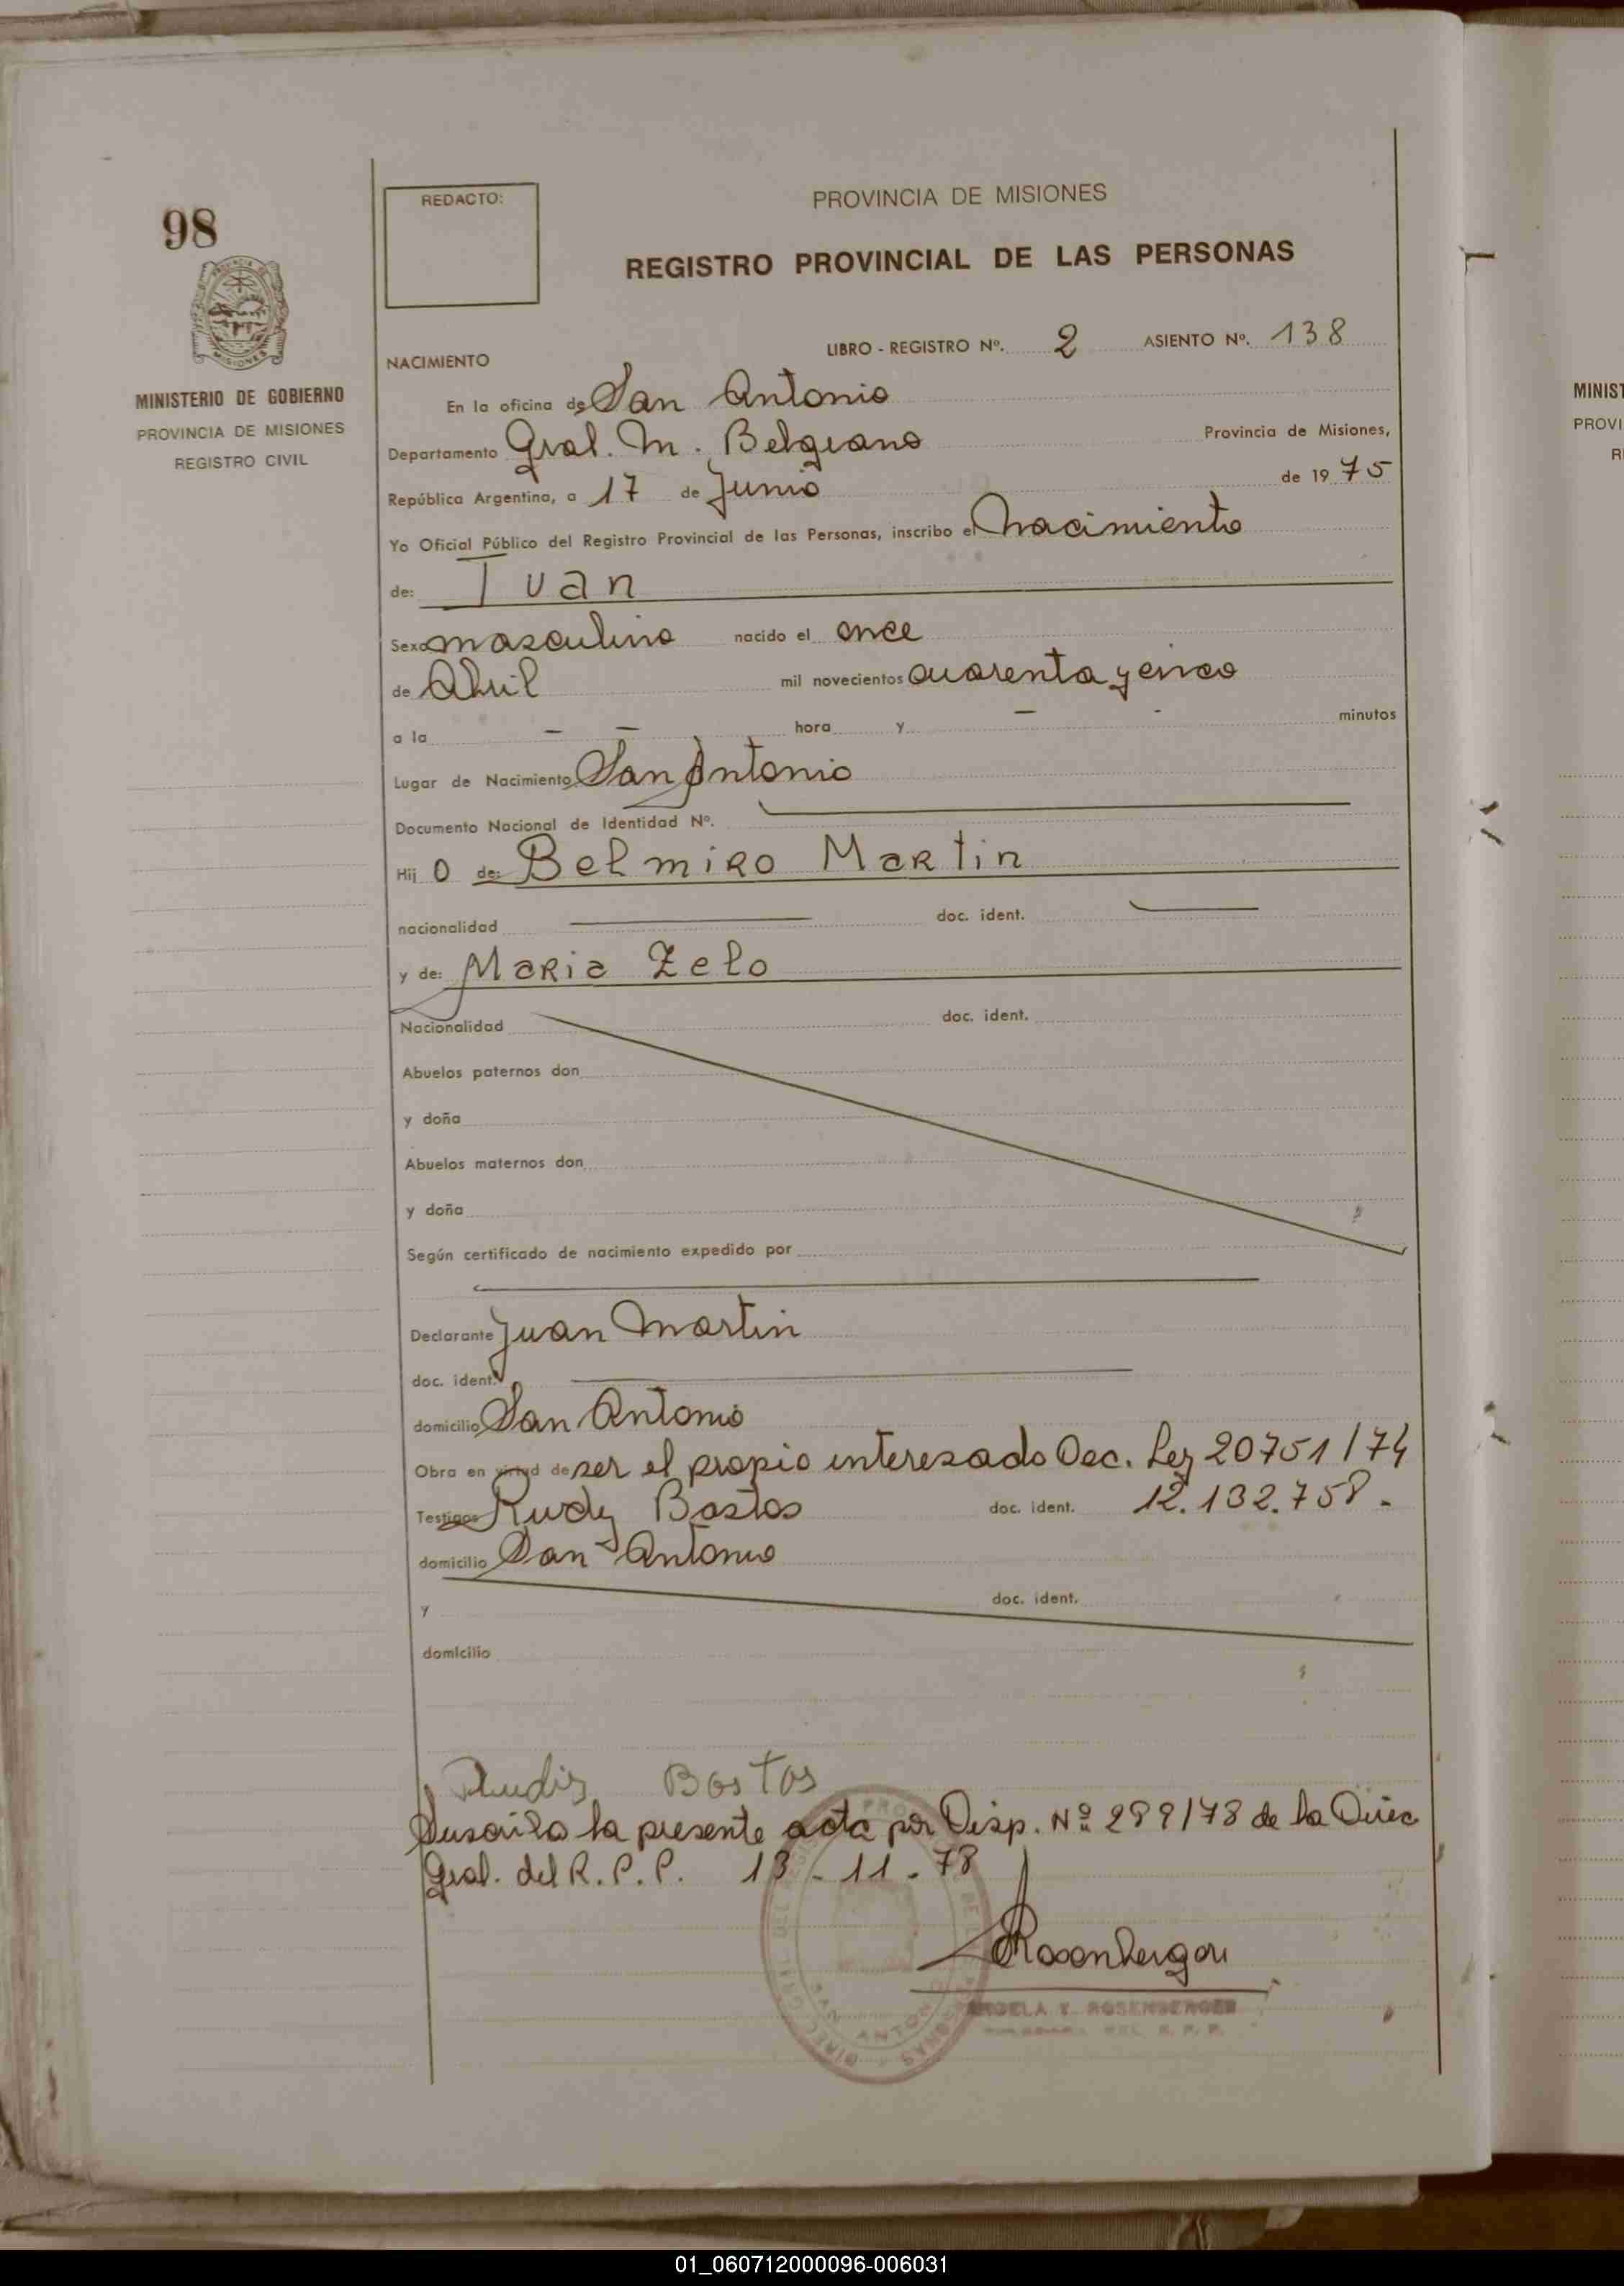 98
REDACTO:
PROVINCIA DE MISIONES
REGISTRO PROVINCIAL DE LAS PERSONAS
MISIONES
MINISTERIO DE GOBIERNO
PROVINCIA DE MISIONES
REGISTRO CIVIL
NACIMIENTO LIBRO - REGISTRO Nº. 2 ASIENTO Nº. 138
En la oficina de San Antonio
Departamento Gral. M. Belgrano Provincia de Misiones,
República Argentina, a 17 de Junio de 1975
Yo Oficial Público del Registro Provincial de las Personas, inscribo el Nacimiento
de: Ivan
Sexo masculino nacido el once
de Abril mil novecientos cuarenta y cinco
a la - - hora y - - minutos
Lugar de Nacimiento San Antonio
Documento Nacional de Identidad Nº.
Hij o de: Belmiro Martin
nacionalidad doc. ident.
y de: Maria Zelo
Nacionalidad doc. ident.
Abuelos paternos don
y doña
Abuelos maternos don
y doña
Según certificado de nacimiento expedido por
Declarante Juan Martin
doc. ident.
domicilio San Antonio
Obra en virtud de ser el propio interesado Dec. Ley 20751/74
Testigos Rudy Bastos doc. ident. 12.132.758.
domicilio San Antonio
y doc. ident.
domicilio
Bostos
Suscrita la presente acta por Disp. Nº 289/78 de la Direc
Gral. del R.P.P. 13-11-78
Rosenberger
ANGELA Y. ROSENBERGER
R. P. P.
SAN ANTONIO
MINIST
PROVI
R
01_060712000096-006031